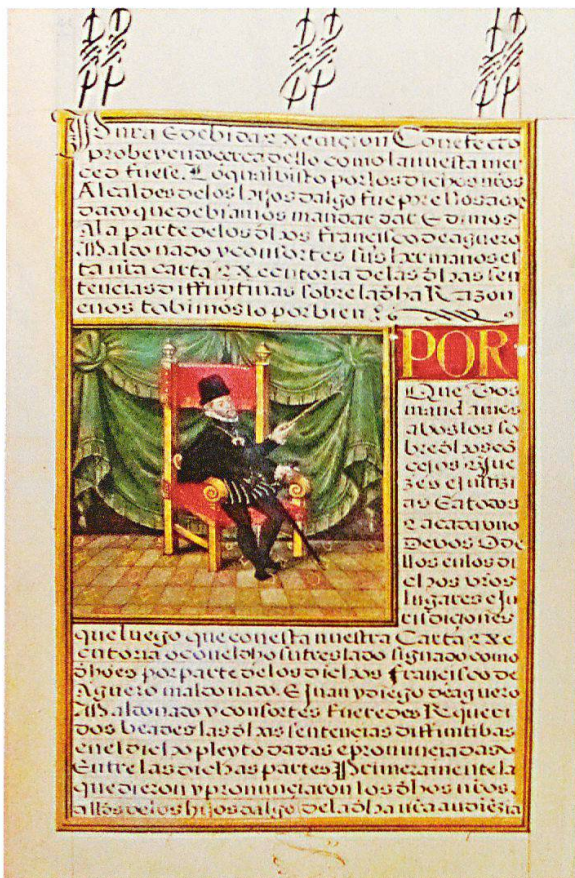 pura E debida Execucion Con efecto
probeyendo cerca dello como la nuestra mer
ced fuese. Lo qual bisto por los dichos nros
Alcaldes delos hijos dalgo fue por ellos acor
dado que debiamos mandar dar E dimos
Ala parte delos dhos francisco de aguero
Maldonado y consortes sus hermanos es
ta nra carta Executoria de las dhas sen
tencias diffinitivas sobre la dha Razon
E nos tobimos lo por bien
POR
Que vos
mandamos
a vos los so
bre dhos con
cejos E jue
zes E justizi
as E a todos
E a cada uno
de vos E de
llos en los di
chos vros
lugares e Ju
risdiciones
que luego que con esta nuestra Carta Exe
cutoria o con el dho su treslado signado como
dho es por parte de los dichos francisco de
Aguero maldonado. E Juan y diego de aguero
Maldonado y consortes fueredes Requeri
dos beades las dhas sentencias diffinitibas
en el dicho pleyto dadas e pronunciadas
Entre las dichas partes Primeramente la
que dieron y pronunciaron los dhos nros.
allds de los hijos dalgo de la dha nra audiezia